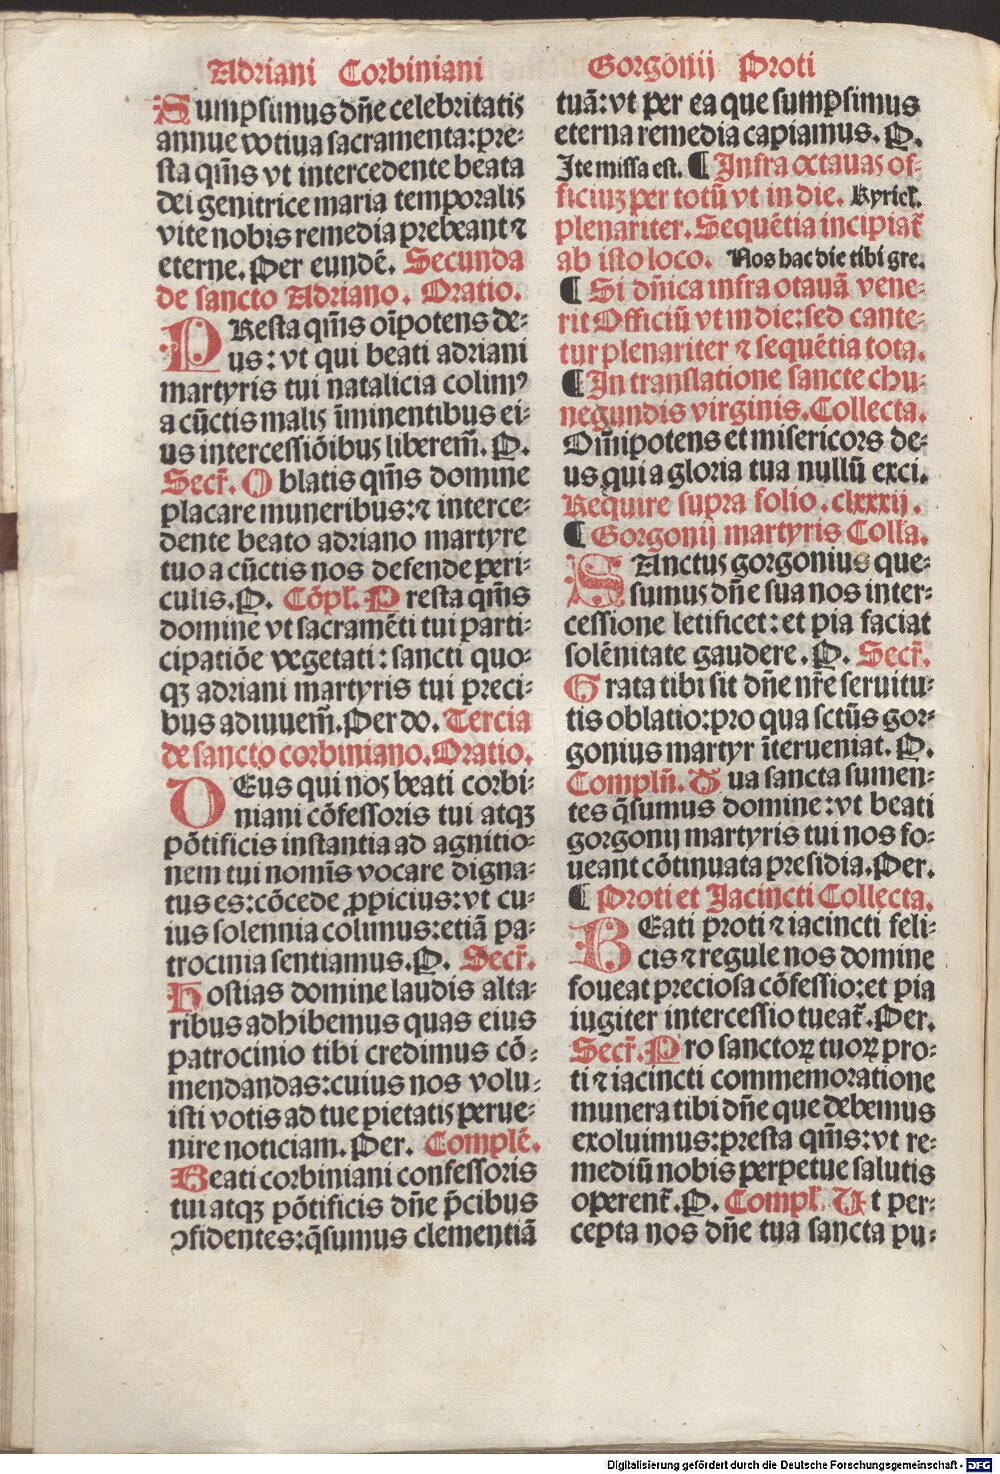 Adriani Corbiniani
Sumpsimus dñe celebritatis
annue votiua sacramenta: pre⸗
sta qm̃s vt intercedente beata
dei genitrice maria temporalis
vite nobis remedia prebeant ⁊
eterne. Per eundẽ. Secunda
de sancto Adriano. Oratio.
PResta qm̃s oĩpotens de⸗
us: vt qui beati adriani
martyris tui natalicia colimꝰ
a cũctis malis ĩminentibus ei⸗
us intercessiõibus liberem̃. P.
Secr̃. Oblatis qm̃s domine
placare muneribus: ⁊ interce⸗
dente beato adriano martyre
tuo a cũctis nos defende peri⸗
culis. P. Cõpl. Presta qm̃s
domine vt sacramẽti tui parti⸗
cipatiõe vegetati: sancti quo⸗
qꝫ adriani martyris tui preci⸗
bus adiuuem̃. Per do. Tercia
de sancto corbiniano. Oratio.
DEus qui nos beati corbi⸗
niani cõfessoris tui atqꝫ
põtificis instantia ad agnitio⸗
nem tui nomĩs vocare digna⸗
tus es: cõcede ꝓpicius: vt cu⸗
ius solennia colimus: etiã pa⸗
trocinia sentiamus. P. Secr̃.
Hostias domine laudis alta⸗
ribus adhibemus quas eius
patrocinio tibi credimus cõ⸗
mendandas: cuius nos volu⸗
isti votis ad tue pietatis perue⸗
nire noticiam. Per. Complẽ.
Beati corbiniani confessoris
tui atqꝫ põtificis dñe p̃cibus
ꝯfidentes: q̃sumus clementiã
Gorgonij Proti
tuã: vt per ea que sumpsimus
eterna remedia capiamus. P.
Ite missa est. ¶ Infra octauas of⸗
ficiuꝫ per totũ vt in die. Kyriel̃.
plenariter. Sequẽtia incipiat̃
ab isto loco. Nos hac die tibi gre.
¶ Si dñica infra otauã vene⸗
rit Officiũ vt in die: sed cante⸗
tur plenariter ⁊ sequẽtia tota.
¶ In translatione sancte chu⸗
negundis virginis. Collecta.
Om̃ipotens et misericors de⸗
us qui a gloria tua nullũ exci.
Require supra folio. clxxxij.
¶ Gorgonij martyris Colla.
SAnctus gorgonius que⸗
sumus dñe sua nos inter⸗
cessione letificet: et pia faciat
solẽnitate gaudere. P. Secr̃.
Grata tibi sit dñe nr̃e seruitu⸗
tis oblatio: pro qua sctũs gor⸗
gonius martyr ĩterueniat. P.
Complñ. Tua sancta sumen⸗
tes q̃sumus domine: vt beati
gorgonij martyris tui nos fo⸗
ueant cõtinuata presidia. Per.
¶ Proti et Jacincti Collecta.
BEati proti ⁊ iacincti feli⸗
cis ⁊ regule nos domine
foueat preciosa cõfessio: et pia
iugiter intercessio tueat̃. Per.
Secr̃. Pro sanctoꝝ tuoꝝ pro⸗
ti ⁊ iacincti commemoratione
munera tibi dñe que debemus
exoluimus: presta qm̃s: vt re⸗
mediũ nobis perpetue salutis
operent̃. P. Compl̃. Ut per⸗
cepta nos dñe tua sancta pu⸗
Digitalisierung gefördert durch die Deutsche Forschungsgemeinschaft - DFG